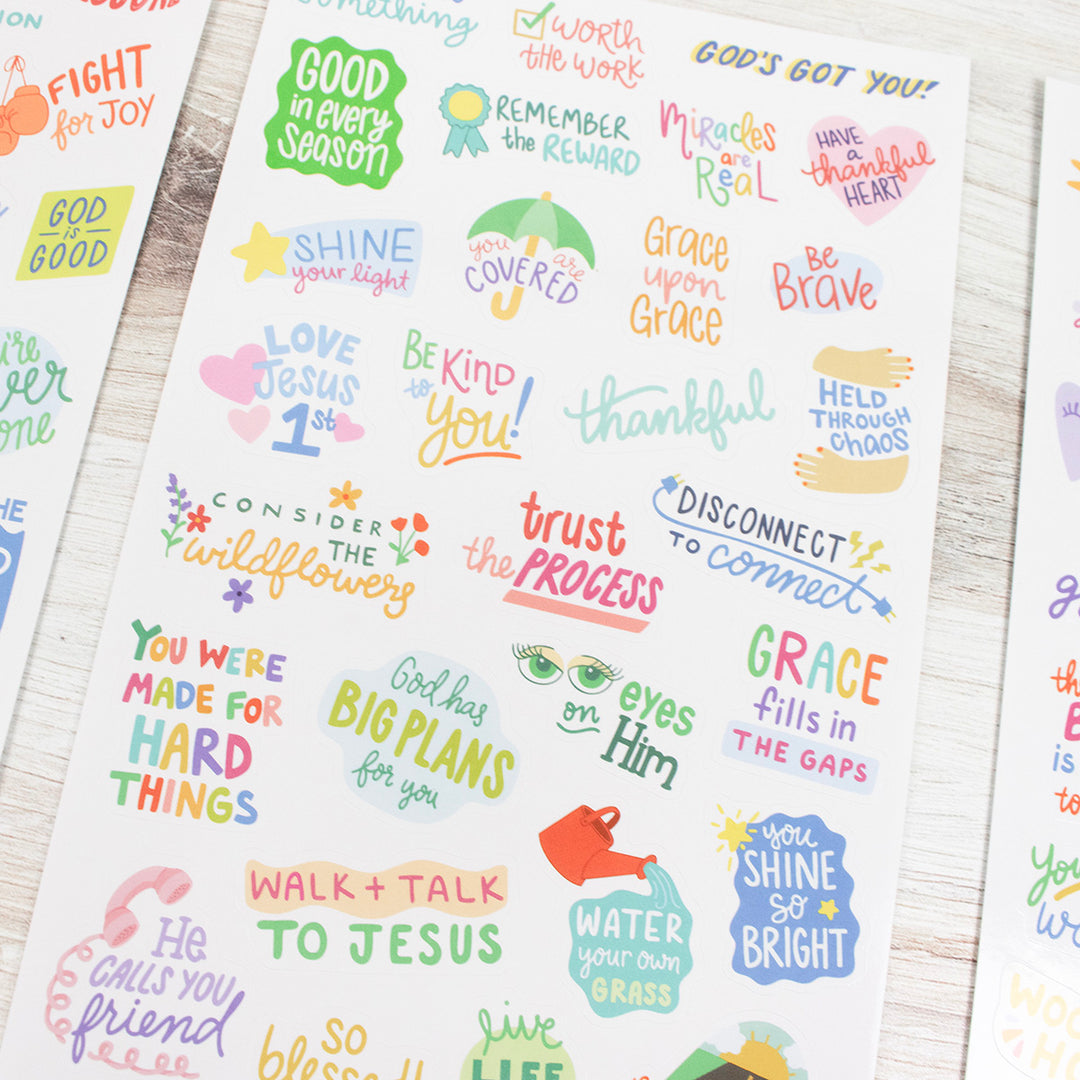 something
WORTH
the WORK
GOD'S GOT YOU!
GOOD
in every
season
REMEMBER
the REWARD
Miracles
are
Real
HAVE
a
thankful
HEART
SHINE
your light
you are
COVERED
Grace
upon
Grace
Be
Brave
LOVE
Jesus
1st
BE KIND
to
you!
thankful
HELD
THROUGH
chaos
CONSIDER
THE
wildflowers
trust
the PROCESS
DISCONNECT
TO connect
YOU WERE
MADE FOR
HARD
THINGS
God has
BIG PLANS
for you
eyes
on
Him
GRACE
fills in
THE GAPS
He
CALLS YOU
friend
WALK + TALK
TO JESUS
WATER
your own
GRASS
you
SHINE
so
BRIGHT
SO
blessed
live
LIFE
FIGHT
for JOY
GOD
is
GOOD